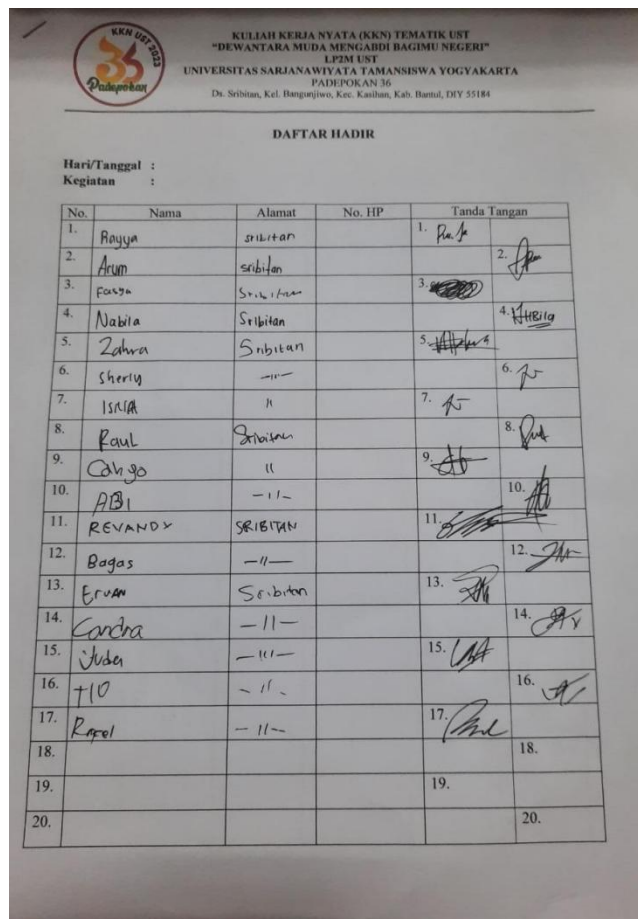 KKN UST 2023
36
Padepokan
KULIAH KERJA NYATA (KKN) TEMATIK UST
"DEWANTARA MUDA MENGABDI BAGIMU NEGERI"
LP2M UST
UNIVERSITAS SARJANAWIYATA TAMANSISWA YOGYAKARTA
PADEPOKAN 36
Ds. Sribitan, Kel. Bangunjiwo, Kec. Kasihan, Kab. Bantul, DIY 55184
DAFTAR HADIR
Hari/Tanggal :
Kegiatan :
No. Nama Alamat No. HP Tanda Tangan
1. Rayya sribitan 1.
2. Arum sribitan 2.
3. Fasya Sribitan 3.
4. Nabila Sribitan 4. Nabila
5. Zahra Sribitan 5.
6. Sherly -11- 6.
7. ISNIA 11 7.
8. Raul Sribitan 8.
9. Cahyo 11 9.
10. ABI -11- 10.
11. REVANDY SRIBITAN 11.
12. Bagas -11- 12.
13. Ervan Sribitan 13.
14. Candra -11- 14.
15. -11- 15.
16. TIO -11- 16.
17. Rafel -11- 17.
18. 18.
19. 19.
20. 20.